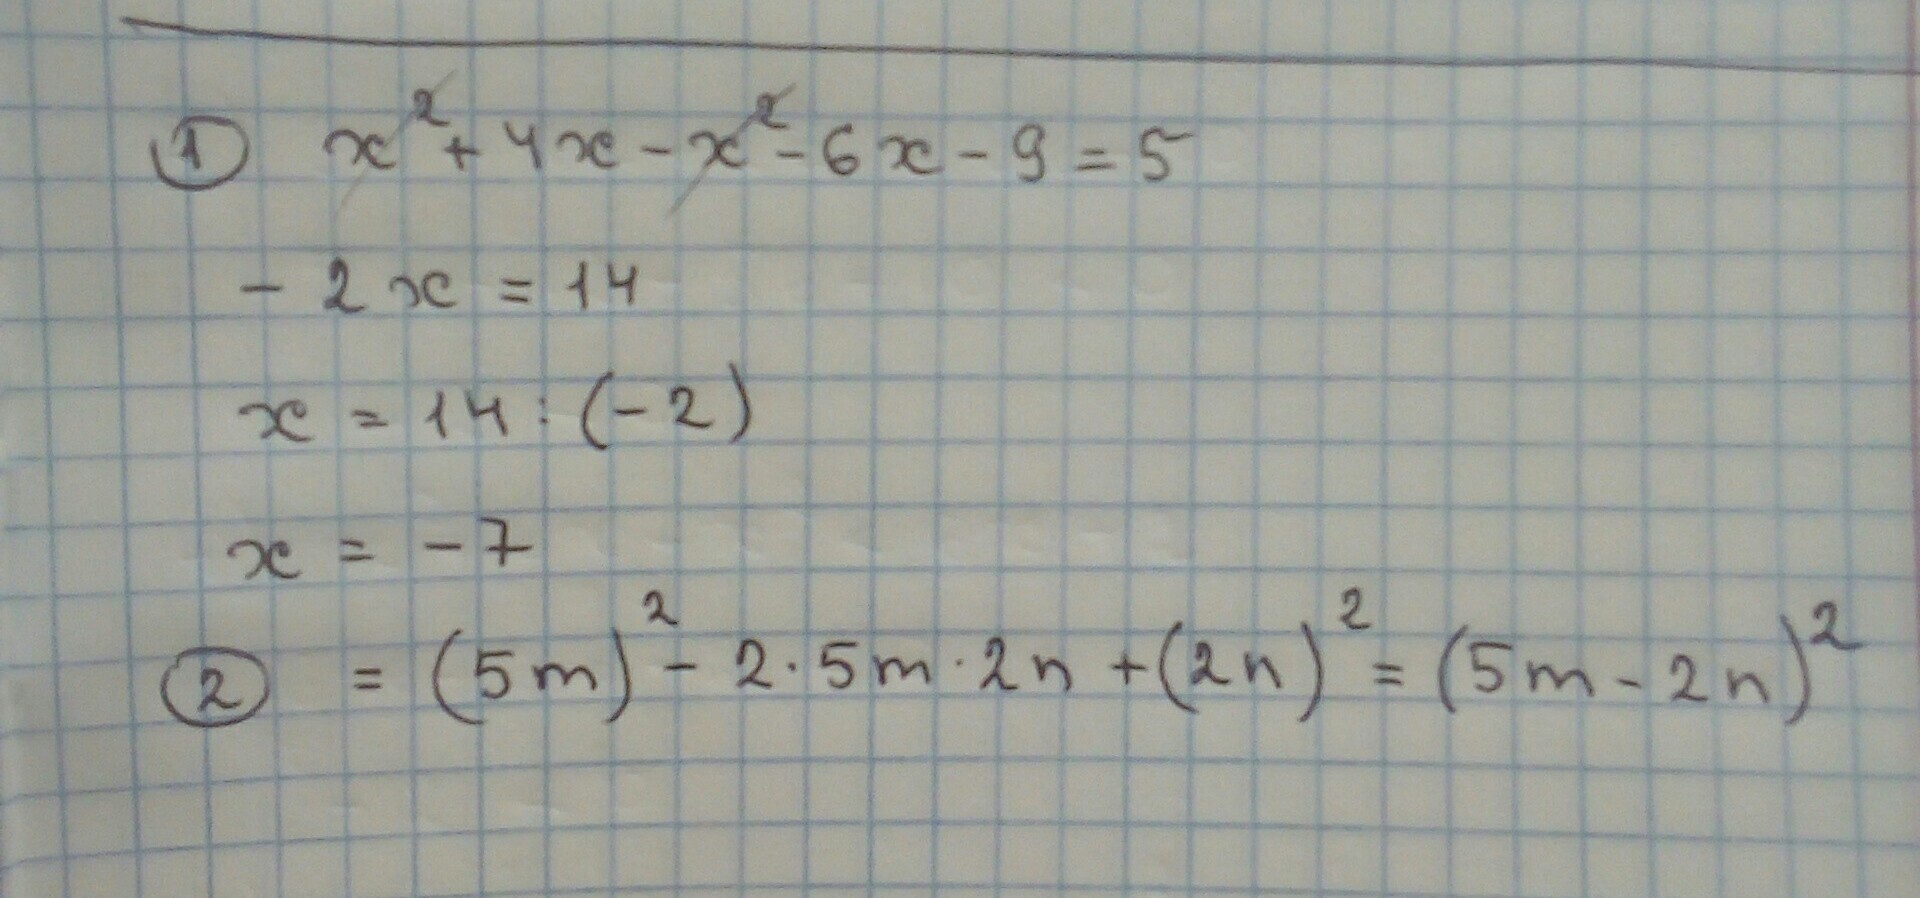 ① x² + 4x - x² - 6x - 9 = 5
- 2x = 14
x = 14 : (-2)
x = -7
② = (5m)² - 2·5m·2n + (2n)² = (5m - 2n)²